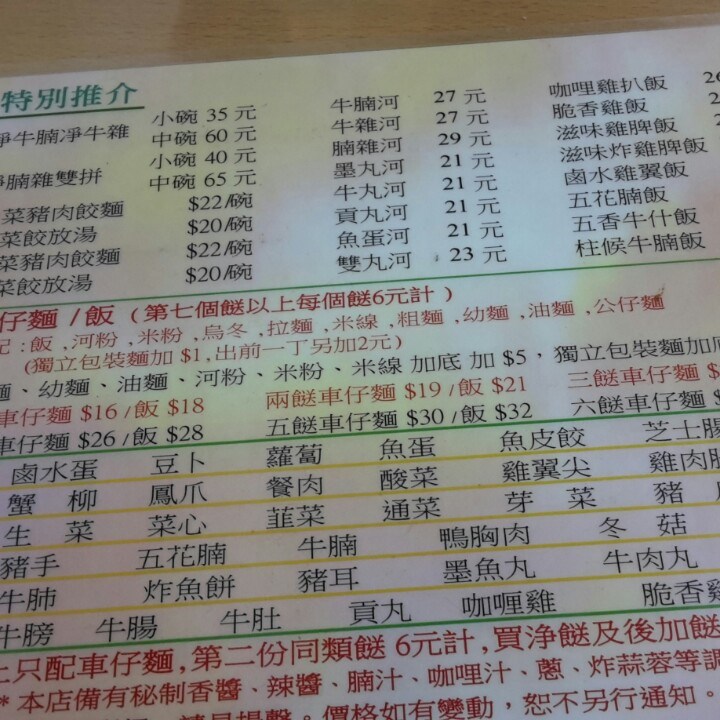 特別推介
淨牛腩淨牛雜 小碗 35 元 牛腩河 27 元 咖哩雞扒飯
中碗 60 元 牛雜河 27 元 脆香雞飯
腩雜雙拼 小碗 40 元 腩雜河 29 元 滋味雞脾飯
中碗 65 元 墨丸河 21 元 滋味炸雞脾飯
菜豬肉餃麵 $22/碗 牛丸河 21 元 鹵水雞翼飯
菜餃放湯 $20/碗 貢丸河 21 元 五花腩飯
菜豬肉餃麵 $22/碗 魚蛋河 21 元 五香牛什飯
菜餃放湯 $20/碗 雙丸河 23 元 柱候牛腩飯
仔麵 / 飯 ( 第七個餸以上每個餸6元計 )
: 飯 , 河粉 , 米粉 , 烏冬 , 拉麵 , 米線 , 粗麵 , 幼麵 , 油麵 , 公仔麵
(獨立包裝麵加 $1 , 出前一丁另加2元)
麵、幼麵、油麵、河粉、米粉、米線 加底 加 $5 , 獨立包裝麵加底
車仔麵 $16 / 飯 $18 兩餸車仔麵 $19 / 飯 $21 三餸車仔麵
車仔麵 $26 / 飯 $28 五餸車仔麵 $30 / 飯 $32 六餸車仔麵
鹵水蛋 豆卜 蘿蔔 魚蛋 魚皮餃 芝士腸
蟹 柳 鳳爪 餐肉 酸菜 雞翼尖 雞肉腸
生 菜 菜心 韮菜 通菜 芽 菜 豬
豬手 五花腩 牛腩 鴨胸肉 冬 菇
牛肺 炸魚餅 豬耳 墨魚丸 牛肉丸
牛膀 牛腸 牛肚 貢丸 咖喱雞 脆香雞
上只配車仔麵 , 第二份同類餸 6元計 , 買淨餸及後加餸
* 本店備有秘制香醬、辣醬、腩汁、咖哩汁、蔥、炸蒜蓉等調
價格如有變動 , 恕不另行通知。